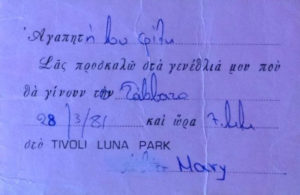 Ἀγαπητή μου φίλη
Σᾶς προσκαλῶ στὰ γενέθλιά μου ποὺ
θὰ γίνουν τὸ Σάββατο
28/3/81 καὶ ὥρα 7.μ.μ.
στὸ TIVOLI LUNA PARK
Mary